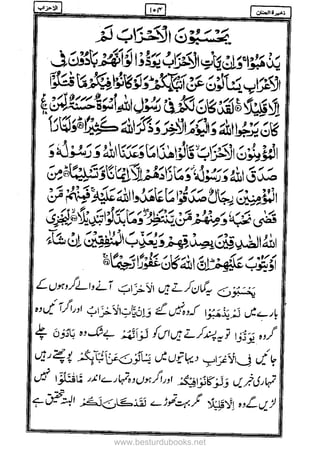 الاحزاب ١٥٠٣ ذخيرة الجنان
يَحْسَبُوْنَ الْاَحْزَابَ لَمْ
يَذْهَبُوْا ۚ وَاِنْ يَّاْتِ الْاَحْزَابُ يَوَدُّوْا لَوْ اَنَّهُمْ بَادُوْنَ فِى
الْاَعْرَابِ يَسْاَلُوْنَ عَنْ اَنْۢبَآئِكُمْ ۭ وَلَوْ كَانُوْا فِيْكُمْ مَّا قٰتَلُوْٓا
اِلَّا قَلِيْلًا ۧ لَقَدْ كَانَ لَكُمْ فِىْ رَسُوْلِ اللّٰهِ اُسْوَةٌ حَسَنَةٌ لِّمَنْ
كَانَ يَرْجُوا اللّٰهَ وَالْيَوْمَ الْاٰخِرَ وَذَكَرَ اللّٰهَ كَثِيْرًا ۭ وَلَمَّا رَاَ
الْمُؤْمِنُوْنَ الْاَحْزَابَ ۙ قَالُوْا هٰذَا مَا وَعَدَنَا اللّٰهُ وَرَسُوْلُهٗ وَ
صَدَقَ اللّٰهُ وَرَسُوْلُهٗ ۡ وَمَا زَادَهُمْ اِلَّآ اِيْمَانًا وَّتَسْلِيْمًا ۭ مِنَ
الْمُؤْمِنِيْنَ رِجَالٌ صَدَقُوْا مَا عَاهَدُوا اللّٰهَ عَلَيْهِ ۚ فَمِنْهُمْ مَّنْ
قَضٰى نَحْبَهٗ وَمِنْهُمْ مَّنْ يَّنْتَظِرُ ۖ وَمَا بَدَّلُوْا تَبْدِيْلًا ۙ لِّيَجْزِىَ
اللّٰهُ الصّٰدِقِيْنَ بِصِدْقِهِمْ وَيُعَذِّبَ الْمُنٰفِقِيْنَ اِنْ شَآءَ
اَوْ يَتُوْبَ عَلَيْهِمْ ۭ اِنَّ اللّٰهَ كَانَ غَفُوْرًا رَّحِيْمًا ۚ
يَحْسَبُوْنَ یہ گمان کرتے ہیں الْاَحْزَابَ آنے والے گروہوں کے
بارے میں لَمْ يَذْهَبُوْا کہ وہ نہیں گئے وَاِنْ يَّاْتِ الْاَحْزَابُ اور اگر آئیں وہ
گروہ يَوَدُّوْا تو یہ پسند کرتے ہیں اس کو لَوْ اَنَّهُمْ بے شک وہ بَادُوْنَ چلے
جائیں فِى الْاَعْرَابِ دیہاتیوں میں يَسْاَلُوْنَ عَنْ اَنْۢبَآئِكُمْ پوچھتے رہیں
تمہاری خبریں وَلَوْ كَانُوْا فِيْكُمْ اور اگر ہوں وہ تمہارے اندر مَّا قٰتَلُوْٓا نہیں
لڑیں گے وہ اِلَّا قَلِيْلًا مگر بہت تھوڑے لَقَدْ كَانَ لَكُمْ البتہ تحقیق ہے
www.besturdubooks.net